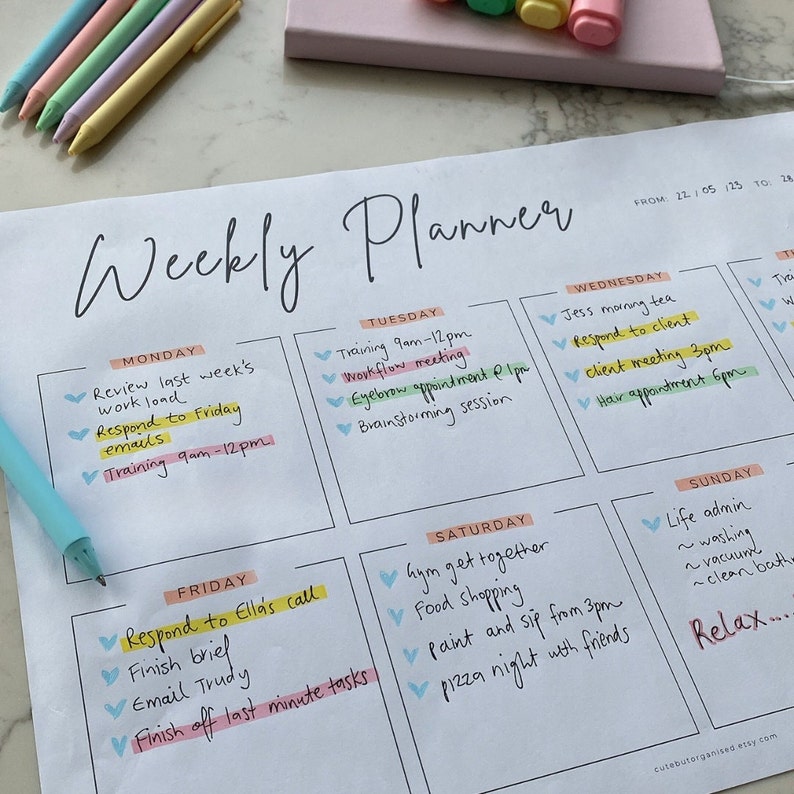 Weekly Planner
FROM: 22 / 05 / 23 TO: 28
MONDAY
Review last week's
workload
Respond to Friday
emails
Training 9am-12pm
TUESDAY
Training 9am-12pm
Workflow meeting
Eyebrow appointment @ 1pm
Brainstorming session
WEDNESDAY
Jess morning tea
Respond to client
client meeting 3pm
Hair appointment 6pm
FRIDAY
Respond to Ella's call
Finish brief
Email Trudy
Finish off last minute tasks
SATURDAY
Gym get together
Food shopping
paint and sip from 3pm
pizza night with friends
SUNDAY
Life admin
~ washing
~ vacuum
~ clean
Relax....
cutebutorganised.etsy.com